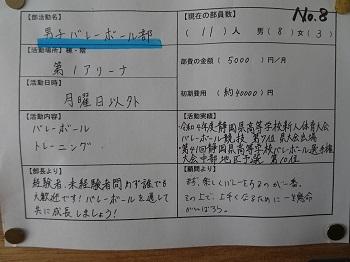 No.8
【部活動名】
男子バレーボール部
【現在の部員数】
(11)人 男(8)女(3)
【活動場所】棟・階
第1アリーナ
部費の金額 ( 5000 )円/月
【活動日】
月曜日以外
初期費用 ( 約40000 )円
【活動内容】
バレーボール
トレーニング
【活動実績】
・令和4年度静岡県高等学校新人体育大会
バレーボール競技 第7位 県大会出場
・第41回静岡県高等学校バレーボール選手権
大会中部地区予選 第10位
【部長より】
経験者、未経験者問わず誰でも
大歓迎です!バレーボールを通して
共に成長しましょう!
【顧問より】
まず、楽しくバレーをやるのが一番。
その上で、上手くなるために一生懸命
がんばろう。